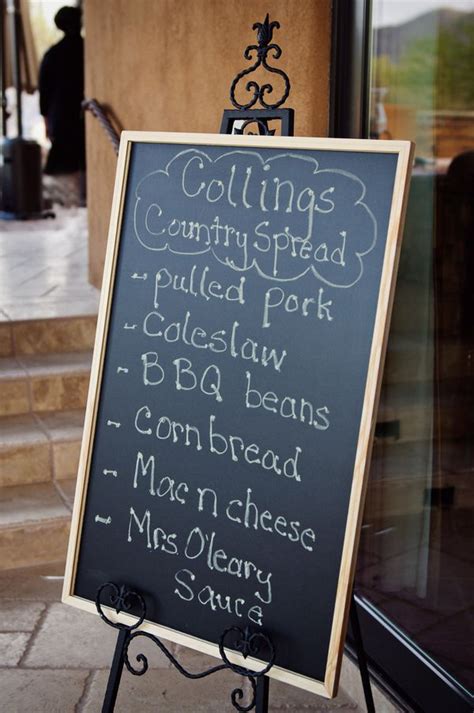 Collings
Country Spread
- pulled pork
- Coleslaw
- BBQ beans
- Cornbread
- Mac n cheese
- Mrs O'leary
Sauce